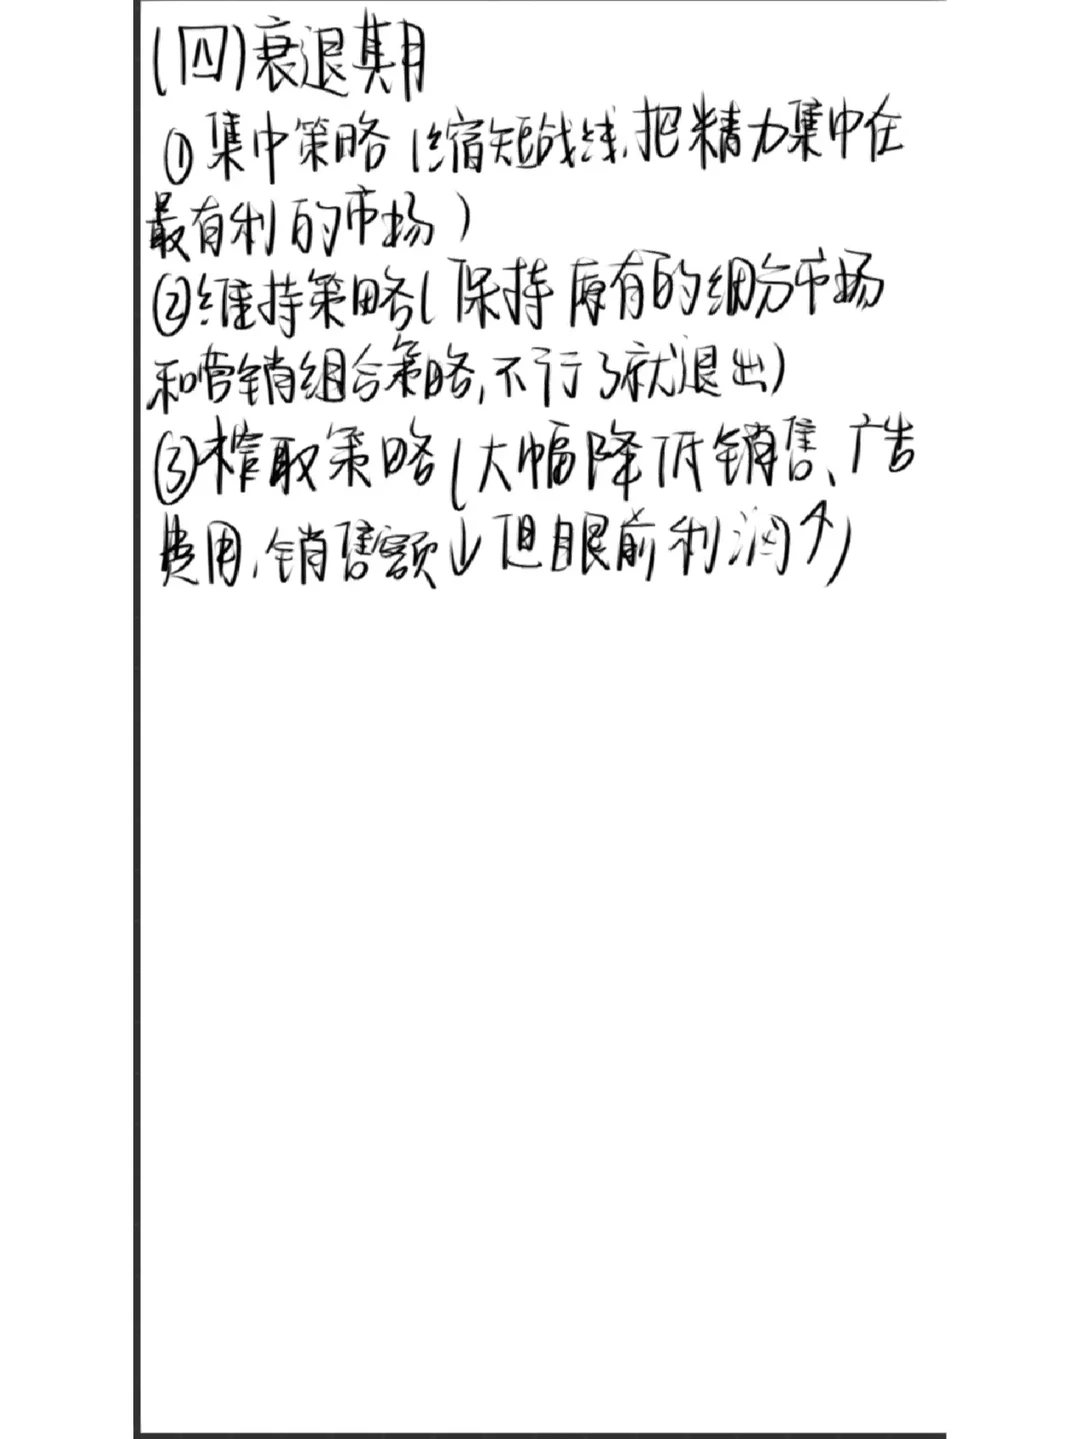 (四)衰退期
①集中策略(缩短战线,把精力集中在
最有利的市场)
②维持策略(保持原有的细分市场
和营销组合策略,不行了就退出)
③榨取策略(大幅降低销售、广告
费用,销售额↓但眼前利润↑)